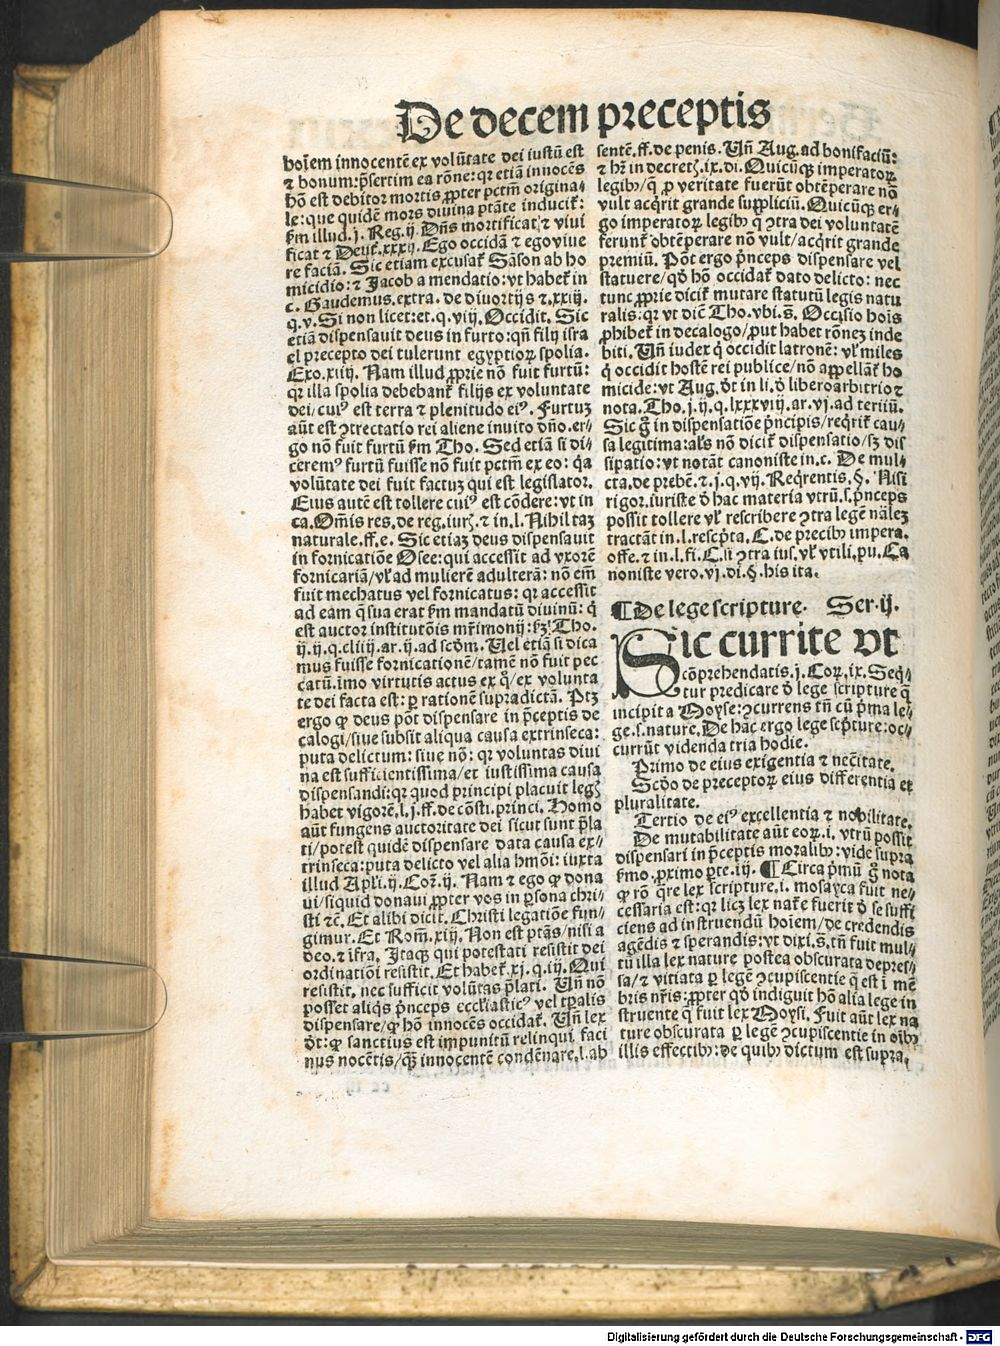 De decem preceptis
hoīem innocentē ex volūtate dei iustū est
⁊ bonum: p̄sertim ea rōne: qꝛ etiā innocēs
hō est debitor mortis ꝓpter pctm̄ origina⸗
le: que quidē mors divina ptāte inducit̄:
ẜm illud .j. Reg. ij. Dn̄s mortificat/ ⁊ vivi
ficat ⁊ Deut̄. xxxij. Ego occidā ⁊ ego viue
re faciā. Sic etiam excusat̄ Sāson ab ho
micidio: ⁊ Jacob a mendatio: vt habet̄ in
c. Gaudemus. extra. de diuortijs ⁊. xxiij.
q. v. Si non licet: et. q. viij. Occidit. Sic
etiā dispensauit deus in furto: qn̄ filij isra
el precepto dei tulerunt egyptioꝝ spolia.
Exo. xiij. Nam illud ꝓprie nō fuit furtū:
qꝛ illa spolia debebant̄ filijs ex voluntate
dei/ cuiꝰ est terra ⁊ plenitudo eiꝰ. Furtuꝫ
aūt est ꝯtrectatio rei aliene inuito dn̄o. er⸗
go nō fuit furtū ẜm Tho. Sed etiā si di⸗
ceremꝰ furtū fuisse nō fuit pctm̄ ex eo: ꝗa
volūtate dei fuit factuꝫ qui est legislator.
Eius autē est tollere cuiꝰ est cōdere: vt in
ca. Om̄is res. de reg. iurꝭ. ⁊ in. l. Nihil taꝫ
naturale. ff. e. Sic etiaꝫ deus dispensauit
in fornicatiōe Osee: qui accessit ad vxorē
fornicariā/ vl̓ ad mulierē adulterā: nō em̄
fuit mechatus vel fornicatus: qꝛ accessit
ad eam q̄ sua erat ẜm mandatū diuinū: q̇
est auctor institutōis mr̄imonij: ẜꝫ Tho.
ij. ij. q. cliiij. ar. ij. ad scōm. Uel etiā si dica
mus fuisse fornicationē/ tamē nō fuit pec
catū. imo virtutis actus ex q̊/ ex volunta
te dei facta est: ꝑ rationē supradictā. Ptꝫ
ergo ꝙ deus pōt dispensare in p̄ceptis de
calogi/ siue subsit aliqua causa extrinseca:
puta delictum: siue nō: qꝛ voluntas diui
na est sufficientissima/ et iustissima causa
dispensandi: qꝛ quod principi placuit legꝭ
habet vigorē. l. j. ff. de cōsti. princi. Homo
aūt fungens auctoritate dei sicut sunt p̄la
ti/ potest quidē dispensare data causa ex⸗
trinseca: puta delicto vel alia hmōi: iuxta
illud Apl̓i. ij. Coꝛ̄. ij. Nam ⁊ ego ꝙ dona
ui/ siquid donaui ꝓpter vos in ꝑsona chri⸗
sti ⁊c̄. Et alibi dicit. Christi legatiōe fun⸗
gimur. Et Rom̄. xiij. Non est ptās/ nisi a
deo. ⁊ īfra. Itaqꝫ qui potestati resistit dei
ordinatiōi resistit. Et habet̄. xj. q. iij. Qui
resistit. nec sufficit volūtas p̄lati. Un̄ nō
posset aliq̇s p̄nceps eccl̓iasticꝰ vel tꝑalis
dispensare/ ꝙ hō innocēs occidat̄. Un̄ lex
dt̄: ꝙ sanctius est impunitū relinqui faci
nus nocētis/ ꝗ̄ innocentē condēnare. l. ab
sentē. ff. de penis. Un̄ Aug. ad bonifaciū:
⁊ hr̄ in decretꝭ. ix. di. Quicūqꝫ imperatoꝝ
legibꝰ/ q̄ ꝓ veritate fuerūt obtēperare nō
vult acq̇rit grande suppliciū. Quicūqꝫ er⸗
go imperatoꝝ legibꝰ q̄ ꝯtra dei voluntatē
ferunt̄ obtēperare nō vult/ acq̇rit grande
premiū. Pōt ergo p̄nceps dispensare vel
statuere/ qd̓ hō occidat̄ dato delicto: nec
tunc ꝓprie dicit̄ mutare statutū legis natu
ralis: qꝛ vt dic̄ Tho. vbi. s̄. Occisio hoīs
ꝓhibet̄ in decalogo/ ꝓut habet rōneꝫ inde
biti. Un̄ iudex q̇ occidit latronē: vl̓ miles
q̇ occidit hostē rei publice/ nō appellat̄ ho
micide: vt Aug. dt̄ in li. d̓ libero arbitrio ⁊
nota. Tho. j. ij. q. lxxxviij. ar. vj. ad tertiū.
Sic g̊ in dispensatiōe p̄ncipis/ req̇rit̄ cau⸗
sa legitima: al̓s nō dicit̄ dispensatio/ sꝫ dis
sipatio: vt notāt canoniste in. c. De mul⸗
cta. de prebē. ⁊. j. q. vij. Req̇rentis. §. Nisi
rigor. iuriste d̓ hac materia vtrū. s. p̄nceps
possit tollere vl̓ rescribere ꝯtra legē nal̓eꝫ
tractāt in. l. rescp̄ta. C. de precibꝰ impera.
offe. ⁊ in. l. fi. C. si ꝯtra ius. vl̓ vtili. pu. Ca
noniste vero. vj. di. §. his ita.
¶ De lege scripture. Ser. ij.
Sic currite vt
cōprehendatis. j. Coꝝ. ix. Seq̇⸗
tur predicare d̓ lege scripture q̄
incipit a Moyse: ꝯcurrens tn̄ cū p̄ma le⸗
ge. s. nature. De hac ergo lege scp̄ture: oc⸗
currūt videnda tria hodie.
Primo de eius exigentia ⁊ nec̄itate.
Scd̓o de preceptoꝝ eius differentia et
pluralitate.
Tertio de eiꝰ excellentia ⁊ nobilitate.
De mutabilitate aūt eoꝝ. i. vtrū possit
dispensari in p̄ceptis moralibꝰ: vide supra
ẜmo. ꝓximo ꝑte. iij. ¶ Circa p̄mū g̊ nota
ꝙ rō q̄re lex scripture. i. mosayca fuit ne⸗
cessaria est: qꝛ licꝫ lex nat̄e fuerit d̓ se suffi
ciens ad instruendū hoīem/ de credendis
agēdis ⁊ sperandis: vt dixi. s̄. tn̄ fuit mul⸗
tū illa lex nature postea obscurata depres⸗
sa/ ⁊ vitiata ꝑ legē ꝯcupiscentie q̄ est ī mē
bris nr̄is: ꝓpter qd̓ indiguit hō alia lege in
struente q̄ fuit lex Moysi. Fuit aūt lex na
ture obscurata ꝑ legē ꝯcupiscentie in oībꝰ
illis effectibꝰ: de quibꝰ dictum est supra.
Digitalisierung gefördert durch die Deutsche Forschungsgemeinschaft - DFG